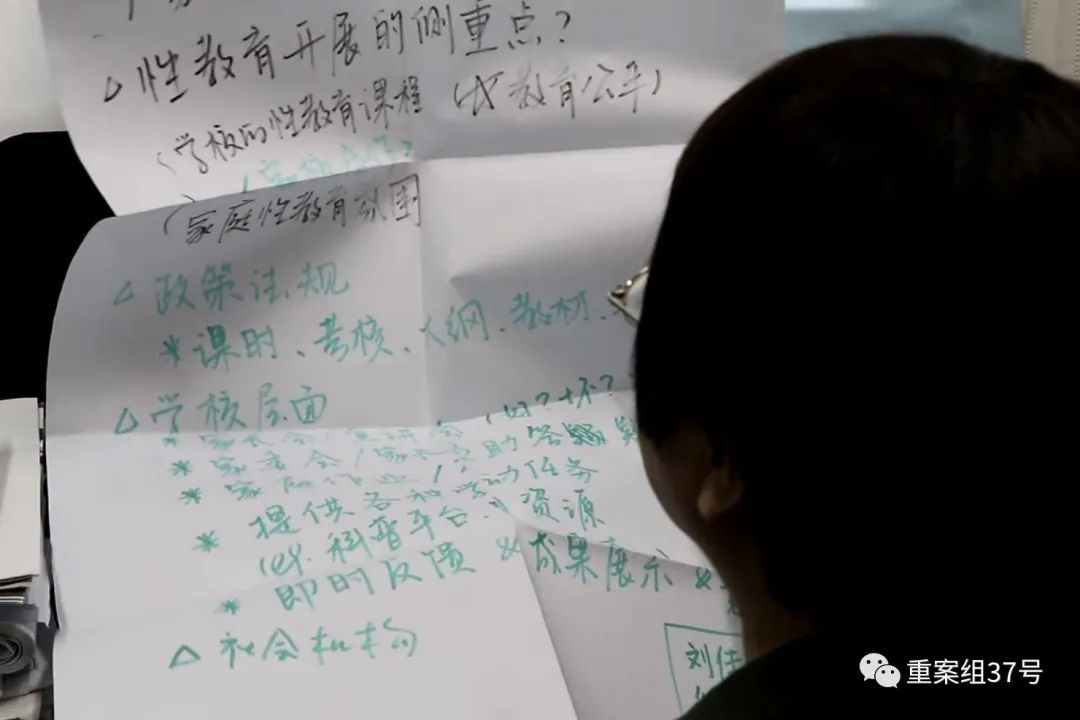 △ 性教育开展的侧重点?
(学校的性教育课程 (教育公平)
(家庭性教育氛围
△ 政策法规
* 课时、考核、大纲、教材、
△ 学校层面
* 家长会/宣讲会 (好?坏?
* 家委会/家长互助答疑
*
提供各种活动任务
(eg. 科普平台、资源
* 即时反馈 & 成果展示 &
△ 社会机构
刘佳
重案组37号